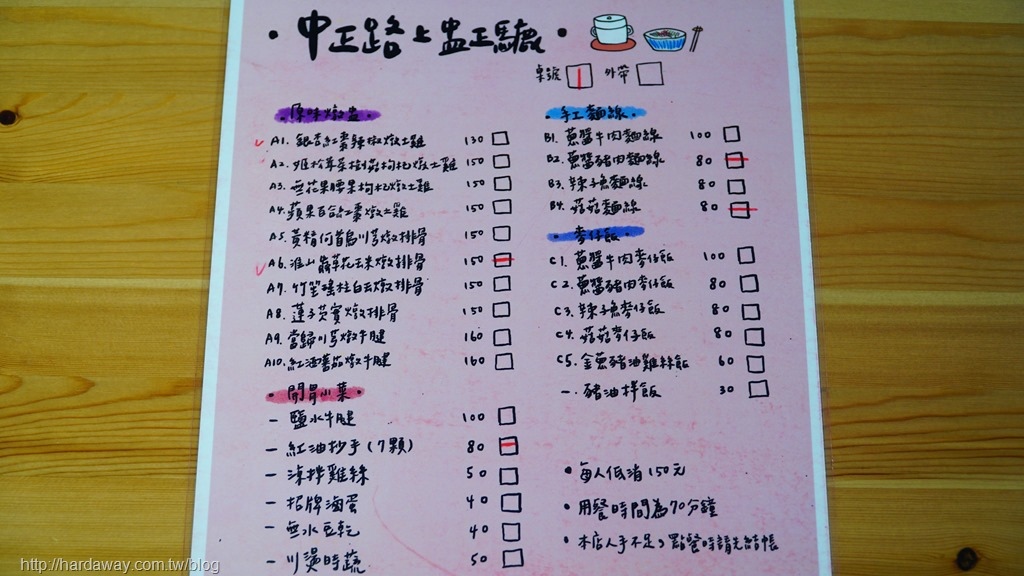 • 中正路上盅正廳 •
桌號 | 外帶
• 原味燉盅 •
A1. 銀杏紅棗辣椒燉土雞 130
A2. 姬松茸茶樹菇枸杞燉土雞 150
A3. 無花果腰果枸杞燉土雞 150
A4. 蘋果百合紅棗燉土雞 150
A5. 黃精何首烏川芎燉排骨 150
A6. 淮山蟲草花玉米燉排骨 150
A7. 竹笙瑤柱白玉燉排骨 150
A8. 蓮子芡實燉排骨 150
A9. 當歸川芎燉牛腱 160
A10. 紅酒蕃茄燉牛腱 160
• 開胃小菜 •
– 鹽水牛腱 100
– 紅油抄手(7顆) 80
– 涼拌雞絲 50
– 招牌滷蛋 40
– 無水豆乾 40
– 川燙時蔬 50
• 手工麵線 •
B1. 蔥鹽牛肉麵線 100
B2. 蔥鹽豬肉麵線 80
B3. 辣子魚麵線 80
B4. 菇菇麵線 80
• 麥仔飯 •
C1. 蔥鹽牛肉麥仔飯 100
C2. 蔥鹽豬肉麥仔飯 80
C3. 辣子魚麥仔飯 80
C4. 菇菇麥仔飯 80
C5. 金蔥豬油雞絲飯 60
–. 豬油拌飯 30
• 每人低消150元
• 用餐時間為70分鐘
• 本店人手不足,點餐時請先結帳
http://hardaway.com.tw/blog